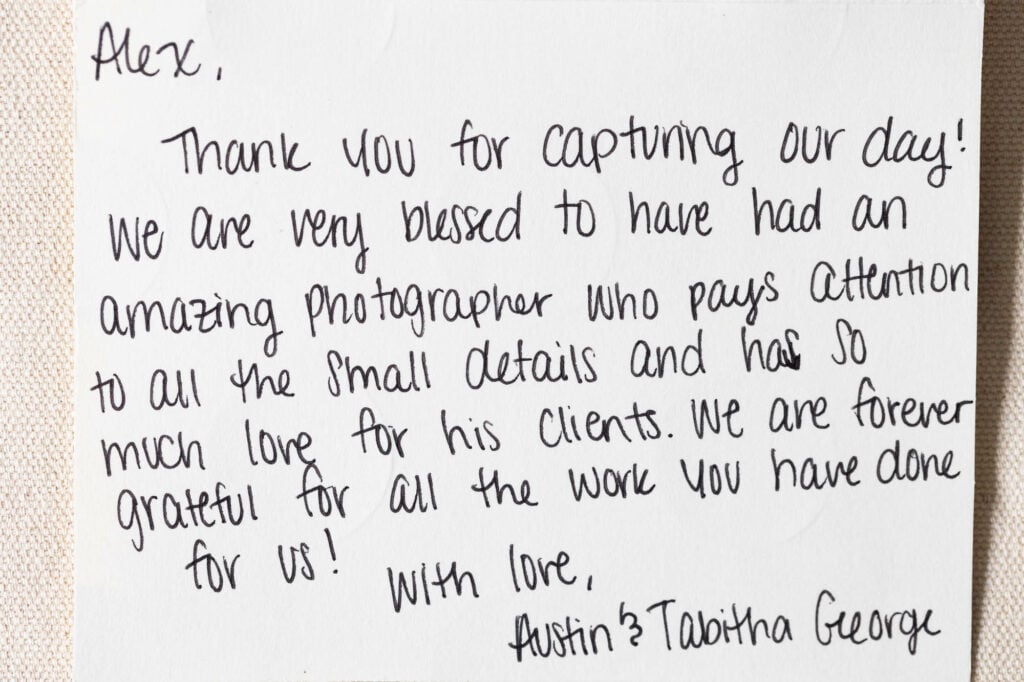 Alex,
Thank you for capturing our day!
We are very blessed to have had an
amazing photographer who pays attention
to all the small details and has so
much love for his clients. We are forever
grateful for all the work you have done
for us!
With love,
Austin & Tabitha George